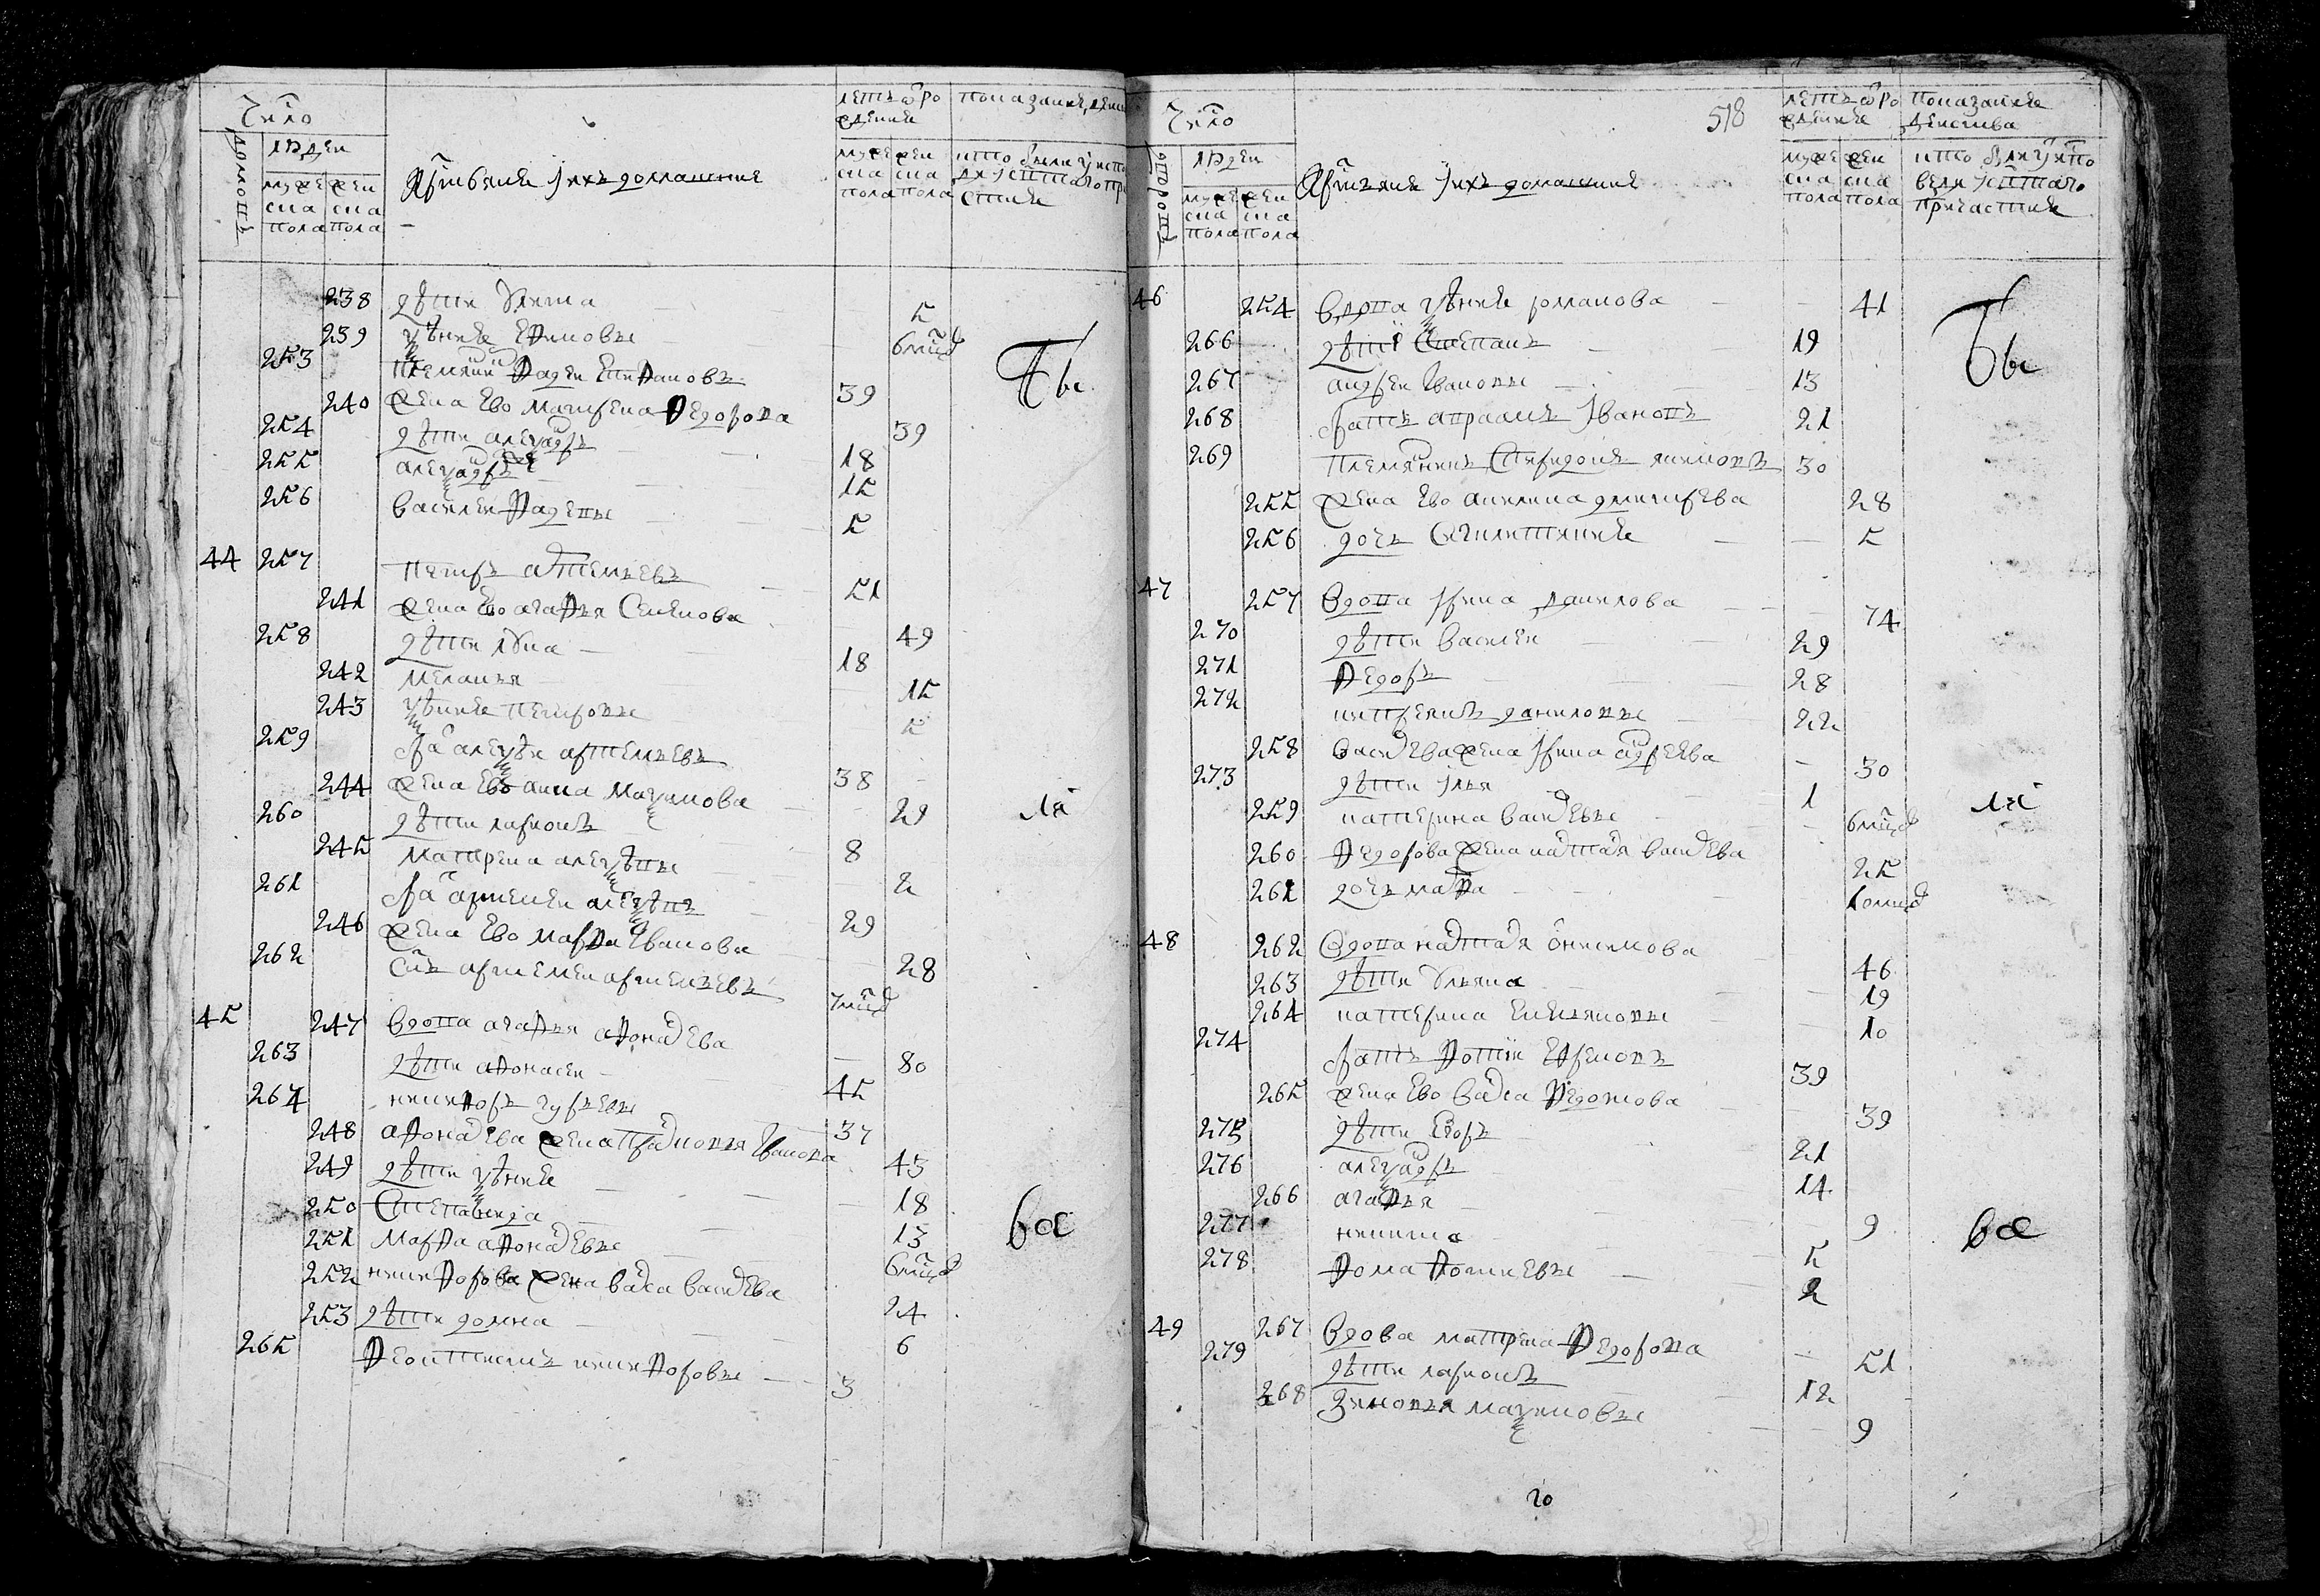 Число
домовъ
людеи
мужеска пола
женска пола
крестьяне и ихъ домашние
летъ от рождения
мужеска пола
женска пола
показание
кто были у исповеди и святаго причастия
238 дети Улита 5
239 Ксения Екимовы 6 мцов
253 племянникъ Фадеи Епифановъ 39
240 жена ево Матрена Федорова 39
254 дети Александръ 18
255 Александръ же 15
256 Василеи Фадеевы 5
бы
44 257 Петръ Артемьевъ 51
241 жена ево Агафья Семенова 49
258 дети Лука 18
242 Меланья 15
243 Ксения Петровы 5
259 братъ Алексеи Артемьевъ 38
244 жена ево Анна Максимова 29
260 дети Ларионъ 8
245 Матрена Алексеевы 2
261 братъ Артемеи 29
246 жена ево Марфа Иванова 28
262 сынъ Артемеи Артемьевъ 7 мцов
ли
45 247 вдова Агафья Афонасьева 80
263 дети Афонасеи 45
264 Никифоръ Гурьевы 37
248 Афонасьева жена Прасковья Иванова 43
249 дети Ксения 18
250 Степанида 13
251 Марфа Афонасьевы 6 мцов
252 Никифорова жена Васса Васильева 24
253 дети Домна 6
265 Феоктистъ Никифоровы 3
вс
518
Число
дворовъ
людеи
мужеска пола
женска пола
крестьяне и ихъ домашние
летъ от рождения
мужеска пола
женска пола
показание действа
кто были у исповеди и святаго причастия
46 254 вдова Ксения Романова 41
266 дети Степанъ 19
267 Андреи Ивановы 13
268 братъ Авраамъ Ивановъ 21
269 племянникъ Спиридонъ Якимовъ 30
255 жена ево Акилина Дмитрева 28
256 дочь 5
бы
47 257 вдова Ирина Данилова 74
270 дети Василеи 29
271 Федоръ 28
272 Киприянъ Даниловы 22
258 Васильева жена Ирина Андреева 30
273 дети Илья 1
259 Катерина Васильевы 6 мцов
260 Федорова жена Наталья Васильева 25
261 дочь Марфа 10 мцов
ли
48 262 вдова Наталья Онисимова 46
263 дети Ульяна 19
264 Катерина Емельяновы 10
274 братъ Фотии Ефремовъ 39
265 жена ево Васса Федотова 39
275 дети Егоръ 21
276 Александръ 14
266 Агафья 9
277 Никита 5
278 Фома Фотиевы 2
49 267 вдова Матрена Федорова 51
279 дети Ларионъ 12
268 Зиновья Максимовы 9
вс
го